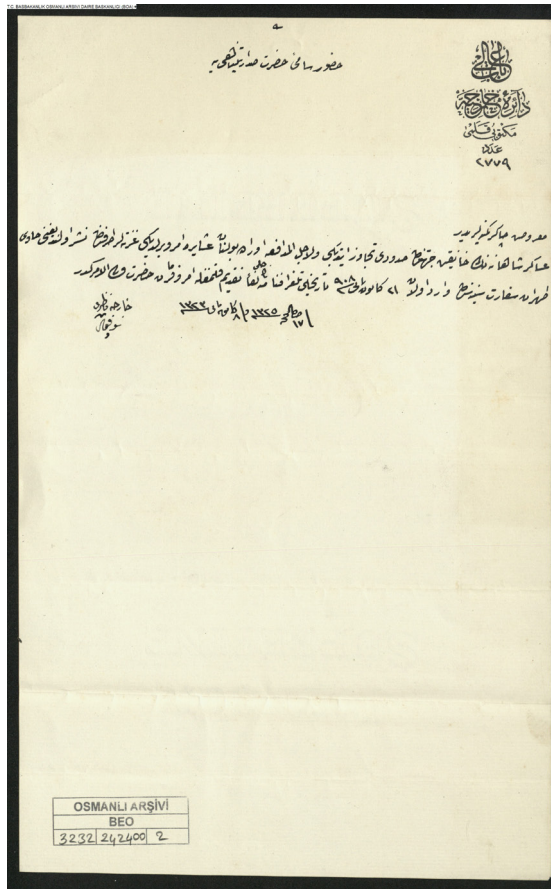 T.C. BAŞBAKANLIK OSMANLI ARŞİVİ DAİRE BAŞKANLIĞI (BOA)
باب عالی
دائرهٔ خارجیه
مكتوبی قلمی
عدد
٢٧٧٩
حضور سامئ حضرت صدارتپناهی‌یه
معروض چاكر كمینه‌لریدر
عساكر شاهانه‌نك خانقین جهتندن حدودی تجاوز ایتدیكی ولاجل المدافعه اوراده بولنان عشایره امر ویرلدیكی غزته‌لر طرفندن نشر اولندیغنی حاوی
طهران سفارت سنیه‌سندن وارد اولان ٢١ كانون ثانی ٩٠٨ تاریخلی تلغرافنامه لفا تقدیم قلنمغله امر و فرمان حضرت من له الامركدر
١٣٢٥ كانون ثانی ١٣٢٣
خارجیه ناظری
OSMANLI ARŞİVİ
BEO
3232 242400 2